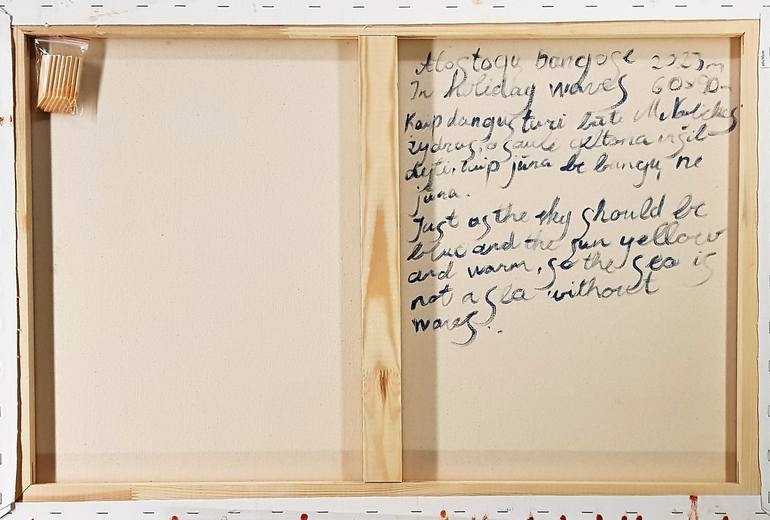 Atostogų bangose 2023m
In holiday waves 60x90
Kaip dangus turi būti
žydras, o saulė geltona ir šil
, taip jūra be bangų ne
jūra.
Just as the sky should be
blue and the sun yellow
and warm, so the sea is
not a sea without
waves..